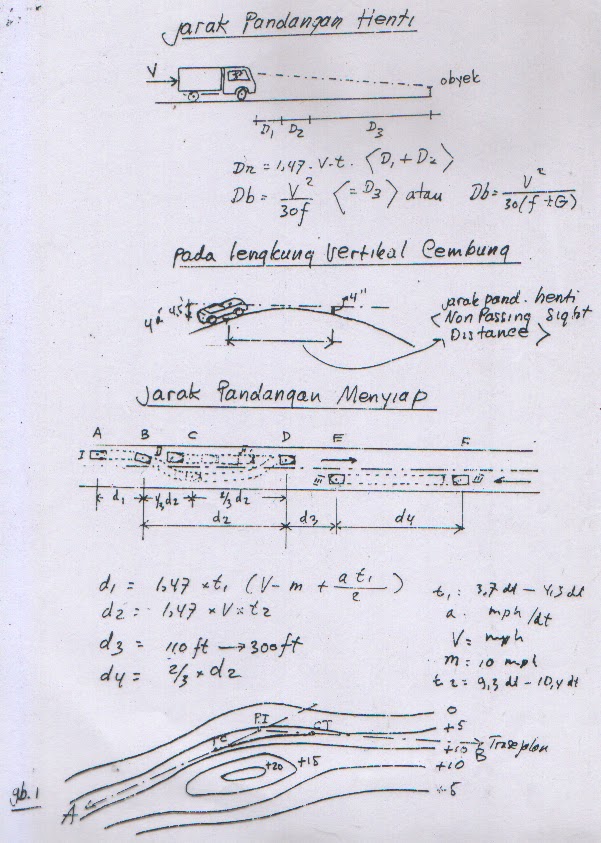 Jarak Pandangan Henti
V
obyek
D1 D2 D3
Dr = 1,47 . V.t. <D1 + D2>
Db = V²/30f <= D3> atau Db = V²/30(f ± G)
pada lengkung Vertikal Cembung
4"
jarak pand. henti
<Non Passing Sight
Distance>
Jarak Pandangan Menyiap
A B C D E F
I II III III
d1 1/3 d2 2/3 d2
d2 d3 d4
d1 = 1,47 × t1 (V - m + a t1/2)
d2 = 1,47 × V × t2
d3 = 110 ft → 300 ft
d4 = 2/3 × d2
t1 : 3,7 dt - 4,3 dt
a . mph/dt
V = mph
m = 10 mph
t2 = 9,3 dt - 10,4 dt
0
PI
CT
+5
TC
+10
B
Trase plan
+20
+15
+10
gb. 1
-5
A